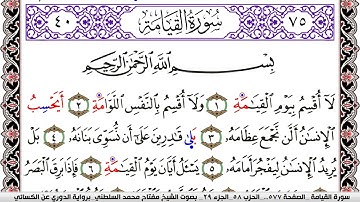 ٧٥ سُورَةُ القِيَامَةِ ٤٠
بِسْمِ ٱللَّهِ ٱلرَّحْمَٰنِ ٱلرَّحِيمِ
لَآ أُقْسِمُ بِيَوْمِ ٱلْقِيَٰمَةِ ١ وَلَآ أُقْسِمُ بِٱلنَّفْسِ ٱللَّوَّامَةِ ٢ أَيَحْسِبُ
ٱلْإِنسَٰنُ أَلَّن نَّجْمَعَ عِظَامَهُۥ ٣ بَلَىٰ قَٰدِرِينَ عَلَىٰٓ أَن نُّسَوِّيَ بَنَانَهُۥ ٤ بَلْ
يُرِيدُ ٱلْإِنسَٰنُ لِيَفْجُرَ أَمَامَهُۥ ٥ يَسْـَٔلُ أَيَّانَ يَوْمُ ٱلْقِيَٰمَةِ ٦ فَإِذَا بَرِقَ ٱلْبَصَرُ
سورة القيامة . الصفحة ٥٧٧ .. الحزب ٥٨ الجزء ٢٩ . بصوت الشيخ مفتاح محمد السلطني . برواية الدوري عن الكسائي